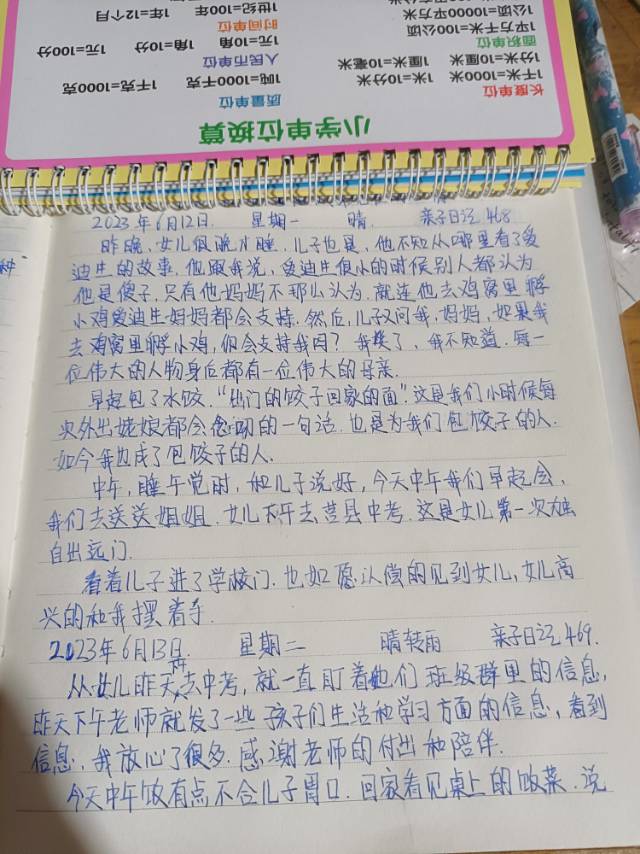 小学单位换算
长度单位
1千米=1000米 1米=10分米
1分米=10厘米 1厘米=10毫米
面积单位
1平方千米=100公顷
1公顷=10000平方米
质量单位
1吨=1000千克 1千克=1000克
人民币单位
1元=10角 1角=10分 1元=100分
时间单位
1世纪=100年 1年=12个月
种
2023年6月12日. 星期一 晴 亲子日记 468
昨晚,女儿很晚才睡,儿子也是,他不知从哪里看了爱
迪生的故事,他跟我说,爱迪生很小的时候别人都认为
他是傻子,只有他妈妈不那么认为,就连他去鸡窝里孵
小鸡爱迪生妈妈都会支持.然后,儿子又问我,妈妈,如果我
去鸡窝里孵小鸡,你会支持我吗?我笑了,我不知道.每一
位伟大的人物身后都有一位伟大的母亲.
早起包了水饺,“出门的饺子回家的面”这是我们小时候每
次外出姥娘都会念叨的一句话,也是为我们包饺子的人.
如今我也成了包饺子的人.
中午,睡午觉时,和儿子说好,今天中午我们早起会,
我们去送送姐姐.女儿下午去莒县中考.这是女儿第一次独
自出远门.
看着儿子进了学校门.也如愿以偿的见到女儿,女儿高
兴的和我摆着手.
2023年6月13日. 星期二 晴转雨 亲子日记 469.
从女儿昨天下午去中考,就一直盯着她们班级群里的信息,
昨天下午老师就发了一些孩子们生活和学习方面的信息,看到
信息,我放心了很多.感谢老师的付出和陪伴.
今天中午饭有点不合儿子胃口.回家看见桌上的饭菜.说